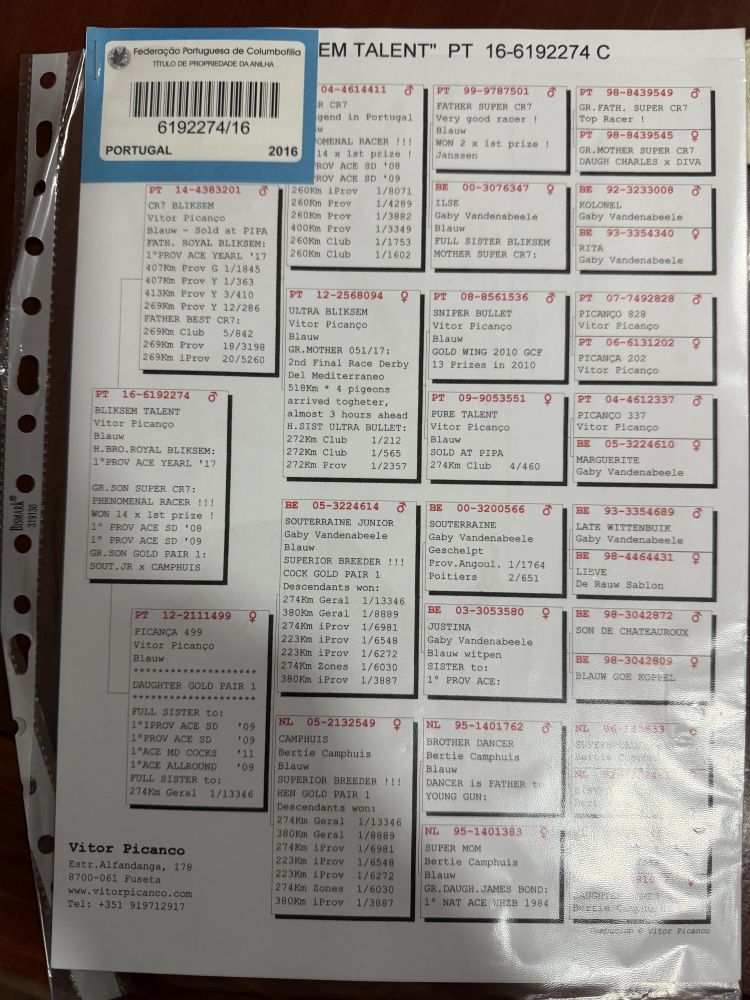 EM TALENT" PT 16-6192274 C
Federação Portuguesa de Columbofilia
TÍTULO DE PROPRIEDADE DA ANILHA
6192274/16
PORTUGAL 2016
PT 16-6192274 ♂
BLIKSEM TALENT
Vitor Picanço
Blauw
H.BRO.ROYAL BLIKSEM:
1°PROV ACE YEARL '17
GR.SON SUPER CR7:
PHENOMENAL RACER !!!
WON 14 x 1st prize !
1° PROV ACE SD '08
1° PROV ACE SD '09
GR.SON GOLD PAIR 1:
SOUT.JR x CAMPHUIS
PT 14-4383201 ♂
CR7 BLIKSEM
Vitor Picanço
Blauw - Sold at PIPA
FATH. ROYAL BLIKSEM:
1°PROV ACE YEARL '17
407Km Prov G 1/1845
407Km Prov Y 1/363
413Km Prov Y 3/410
269Km Prov Y 12/286
FATHER BEST CR7:
269Km Club 5/842
269Km Prov 18/3198
269Km iProv 20/5260
PT 12-2111499 ♀
PICANÇA 499
Vitor Picanço
Blauw
********************
DAUGHTER GOLD PAIR 1
********************
FULL SISTER to:
1°IPROV ACE SD '09
1°PROV ACE SD '09
1°ACE MD COCKS '11
1°ACE ALLROUND '09
FULL SISTER to:
274Km Geral 1/13346
04-4614411 ♂
R CR7
gend in Portugal
w
OMENAL RACER !!!
14 x 1st prize !
ROV ACE SD '08
ROV ACE SD '09
260Km iProv 1/8071
260Km Prov 1/4289
260Km Prov 1/3882
400Km Prov 1/3349
260Km Club 1/1753
260Km Club 1/1602
PT 12-2568094 ♀
ULTRA BLIKSEM
Vitor Picanço
Blauw
GR.MOTHER 051/17:
2nd Final Race Derby
Del Mediterraneo
518Km * 4 pigeons
arrived togheter,
almost 3 hours ahead
H.SIST ULTRA BULLET:
272Km Club 1/212
272Km Club 1/565
272Km Prov 1/2357
BE 05-3224614 ♂
SOUTERRAINE JUNIOR
Gaby Vandenabeele
Blauw
SUPERIOR BREEDER !!!
COCK GOLD PAIR 1
Descendants won:
274Km Geral 1/13346
380Km Geral 1/8889
274Km iProv 1/6981
223Km iProv 1/6548
223Km iProv 1/6272
274Km Zones 1/6030
380Km iProv 1/3887
NL 05-2132549 ♀
CAMPHUIS
Bertie Camphuis
Blauw
SUPERIOR BREEDER !!!
HEN GOLD PAIR 1
Descendants won:
274Km Geral 1/13346
380Km Geral 1/8889
274Km iProv 1/6981
223Km iProv 1/6548
223Km iProv 1/6272
274Km Zones 1/6030
380Km iProv 1/3887
PT 99-9787501 ♂
FATHER SUPER CR7
Very good racer !
Blauw
WON 2 x 1st prize !
Janssen
BE 00-3076347 ♀
ILSE
Gaby Vandenabeele
Blauw
FULL SISTER BLIKSEM
MOTHER SUPER CR7:
PT 08-8561536 ♂
SNIPER BULLET
Vitor Picanço
Blauw
GOLD WING 2010 GCF
13 Prizes in 2010
PT 09-9053551 ♀
PURE TALENT
Vitor Picanço
Blauw
SOLD AT PIPA
274Km Club 4/460
BE 00-3200566 ♂
SOUTERRAINE
Gaby Vandenabeele
Geschelpt
Prov.Angoul. 1/1764
Poitiers 2/651
BE 03-3053580 ♀
JUSTINA
Gaby Vandenabeele
Blauw witpen
SISTER to:
1° PROV ACE:
NL 95-1401762 ♂
BROTHER DANCER
Bertie Camphuis
Blauw
DANCER is FATHER to
YOUNG GUN:
NL 95-1401383 ♀
SUPER MOM
Bertie Camphuis
Blauw
GR.DAUGH.JAMES BOND:
1° NAT ACE WHZB 1984
PT 98-8439549 ♂
GR.FATH. SUPER CR7
Top Racer !
PT 98-8439545 ♀
GR.MOTHER SUPER CR7
DAUGH CHARLES x DIVA
BE 92-3233008 ♂
KOLONEL
Gaby Vandenabeele
BE 93-3354340 ♀
RITA
Gaby Vandenabeele
PT 07-7492828 ♂
PICANÇO 828
Vitor Picanço
PT 06-6131202 ♀
PICANÇA 202
Vitor Picanço
PT 04-4612337 ♂
PICANÇO 337
Vitor Picanço
BE 05-3224610 ♀
MARGUERITE
Gaby Vandenabeele
BE 93-3354689 ♂
LATE WITTENBUIK
Gaby Vandenabeele
BE 98-4464431 ♀
LIEVE
De Rauw Sablon
BE 98-3042872 ♂
SON DE CHATEAUROUX
BE 98-3042809 ♀
BLAUW GOE KOPPEL
NL
Bertie
NL
DAUGHTER
Bertie
Vitor Picanco
Estr.Alfandanga, 178
8700-061 Fuseta
www.vitorpicanco.com
Tel: +351 919712917
Compuclub © Vitor Picanco
BISMARK®
319130